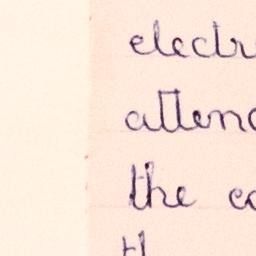 electr
atten
the co
th